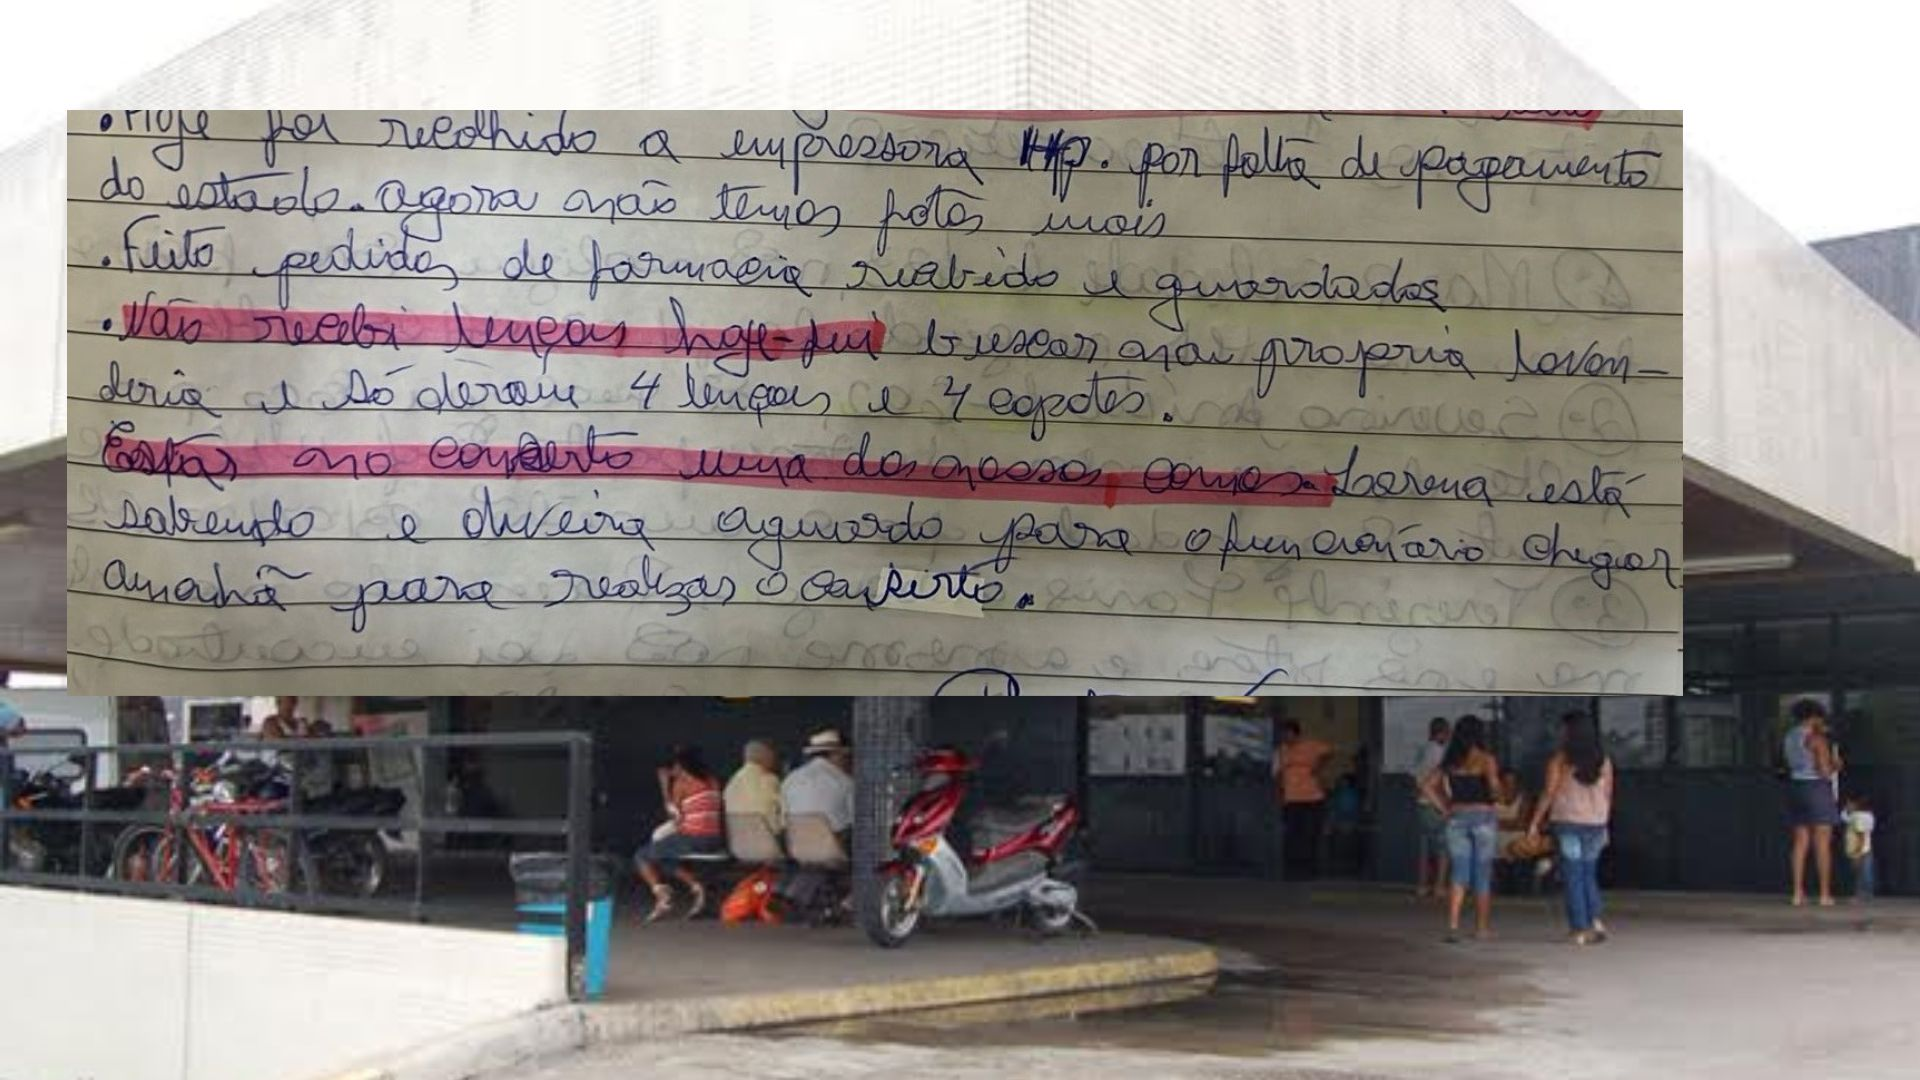 . Hoje foi recolhido a empressora HP. por falta de pagamento
do estado. agora não temos fotos mais
. Feito pedidos de farmacia recebido e guardados
. Não recebi lençois hoje - fui buscar na propria lavan-
deria e só deram 4 lençois e 4 capotes.
Estar no conserto uma das nossas camas. Lorena está
sabendo e oliveira aguardo para o funcionário chegar
amanhã para realizar o conserto.